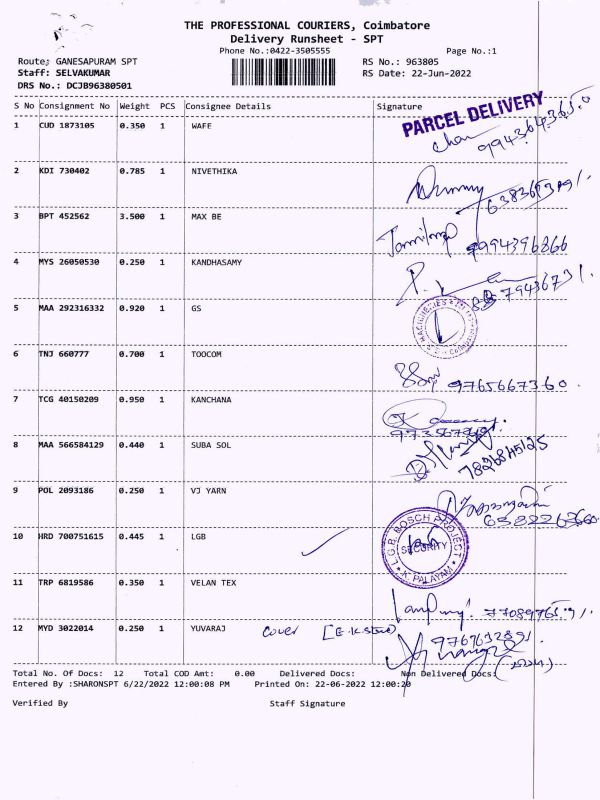 THE PROFESSIONAL COURIERS, Coimbatore
Delivery Runsheet - SPT
Phone No.:0422-3505555 Page No.:1
Route: GANESAPURAM SPT RS No.: 963805
Staff: SELVAKUMAR RS Date: 22-Jun-2022
DRS No.: DCJB96380501
S No Consignment No Weight PCS Consignee Details Signature
PARCEL DELIVERY
1 CUD 1873105 0.350 1 WAFE
2 KDI 730402 0.785 1 NIVETHIKA
3 BPT 452562 3.500 1 MAX BE
9994396866
4 MYS 26050530 0.250 1 KANDHASAMY
5 MAA 292316332 0.920 1 GS
6 TNJ 660777 0.700 1 TOOCOM
9765667360
7 TCG 40150209 0.950 1 KANCHANA
8 MAA 566584129 0.440 1 SUBA SOL
9 POL 2093186 0.250 1 VJ YARN
10 HRD 700751615 0.445 1 LGB
L.G.B. BOSCH PROJECT
SECURITY
K. PALAYAM
11 TRP 6819586 0.350 1 VELAN TEX
12 MYD 3022014 0.250 1 YUVARAJ cover
Total No. Of Docs: 12 Total COD Amt: 0.00 Delivered Docs: Non Delivered Docs:
Entered By :SHARONSPT 6/22/2022 12:00:08 PM Printed On: 22-06-2022 12:00:20
Verified By Staff Signature